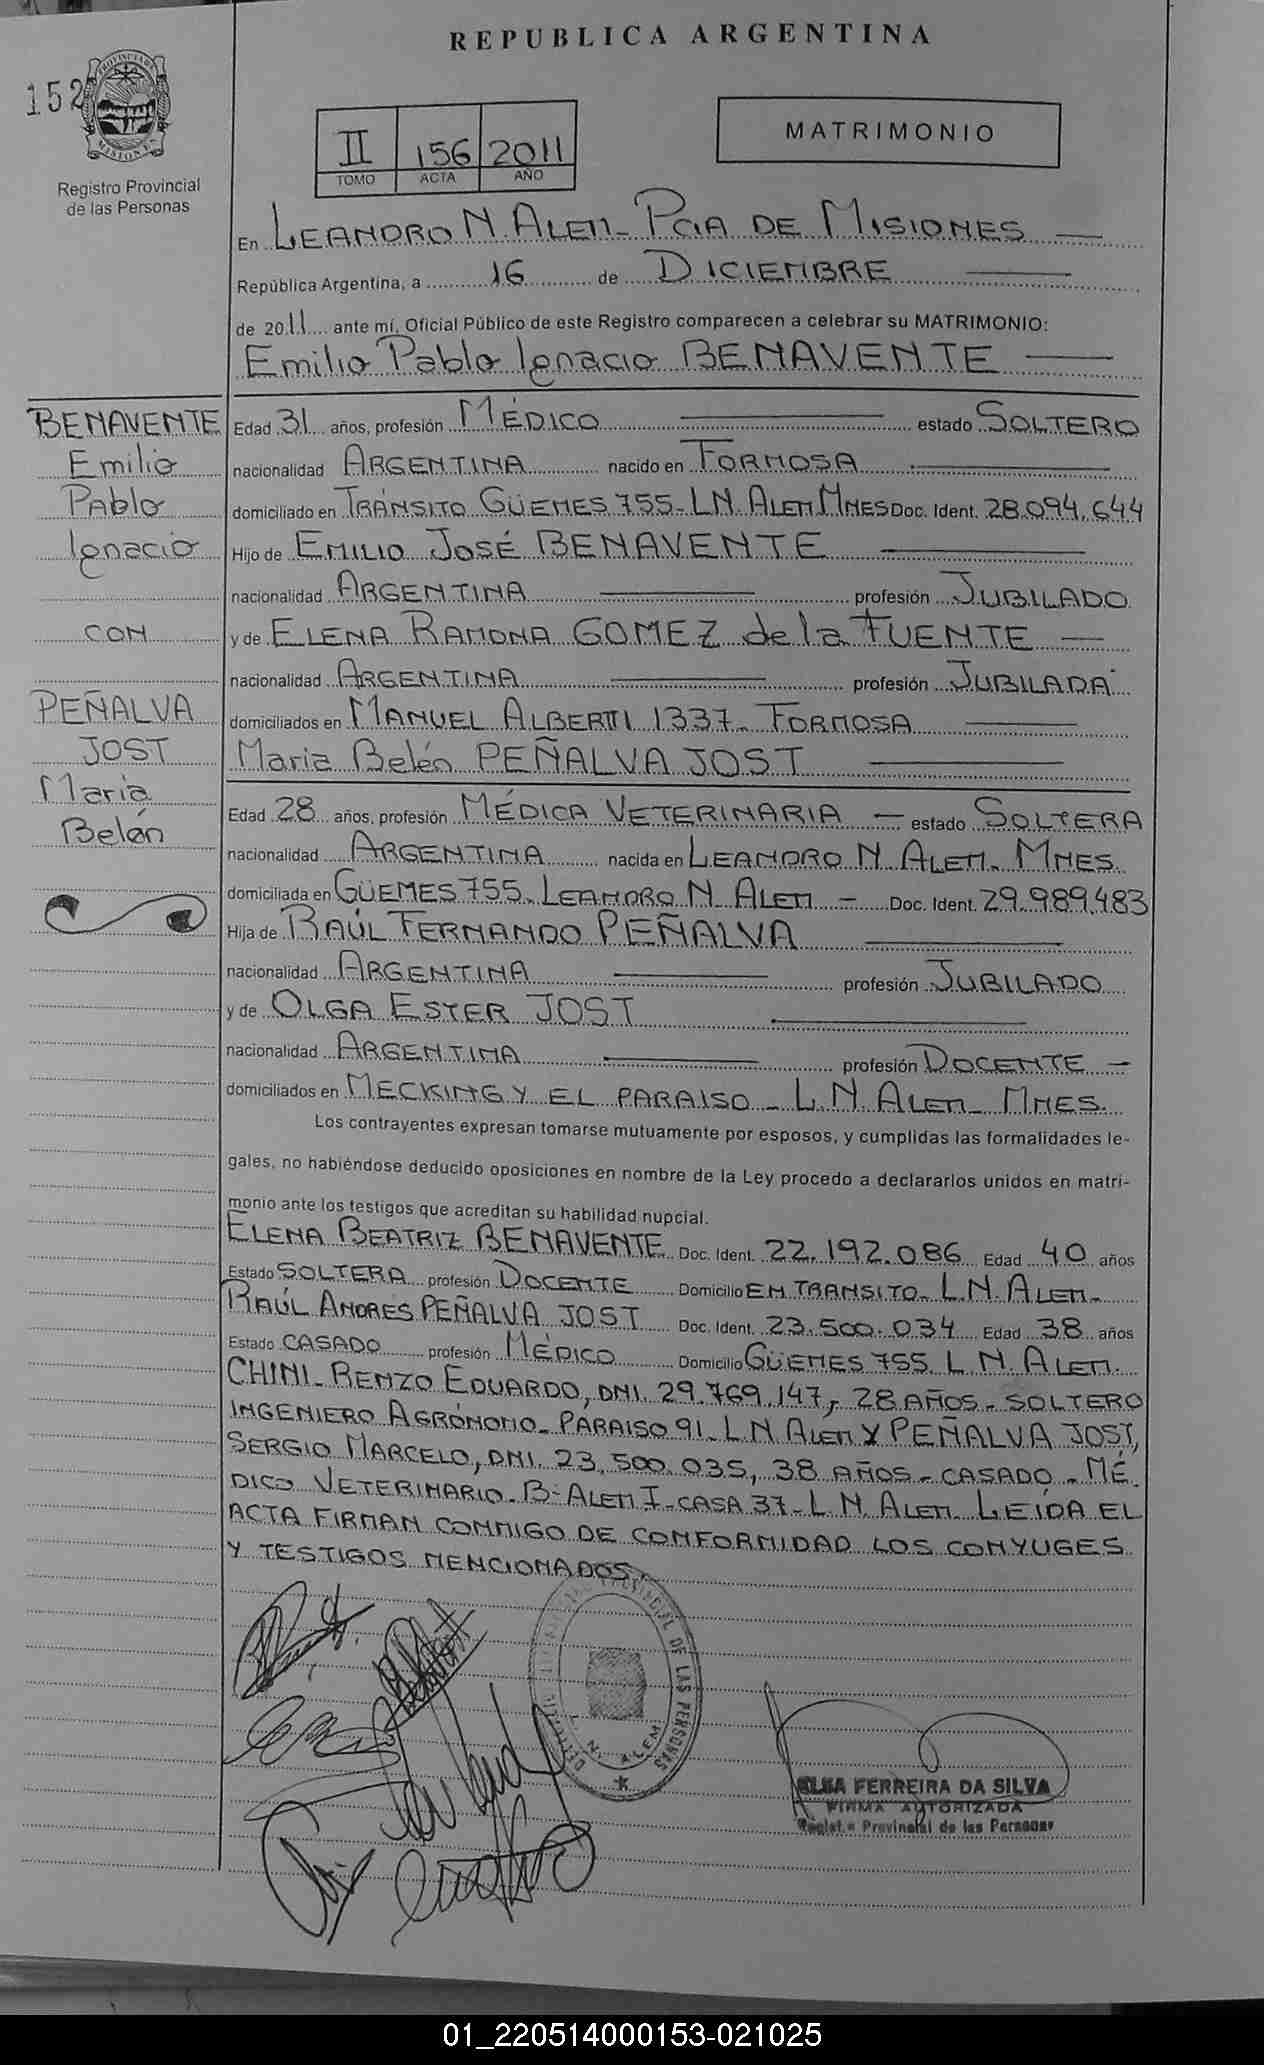 REPUBLICA ARGENTINA
152
PROVINCIA DE
MISIONES
Registro Provincial
de las Personas
II 156 2011
TOMO ACTA AÑO
MATRIMONIO
En LEANDRO N. ALEM - PCIA DE MISIONES
República Argentina, a 16 de DICIEMBRE
de 2011 ante mí, Oficial Público de este Registro comparecen a celebrar su MATRIMONIO:
Emilio Pablo Ignacio BENAVENTE
BENAVENTE
Emilio
Pablo
Ignacio
CON
PEÑALVA
JOST
Maria
Belén
Edad 31 años, profesión MÉDICO estado SOLTERO
nacionalidad ARGENTINA nacido en FORMOSA
domiciliado en TRÁNSITO GÜEMES 755- L.N. ALEM MNES Doc. Ident. 28.094.644
Hijo de EMILIO JOSÉ BENAVENTE
nacionalidad ARGENTINA profesión JUBILADO
y de ELENA RAMONA GOMEZ de la FUENTE
nacionalidad ARGENTINA profesión JUBILADA
domiciliados en MANUEL ALBERTI 1337- FORMOSA
Maria Belén PEÑALVA JOST
Edad 28 años, profesión MÉDICA VETERINARIA estado SOLTERA
nacionalidad ARGENTINA nacida en LEANDRO N. ALEM- MNES.
domiciliada en GÜEMES 755. LEANDRO N. ALEM - Doc. Ident. 29.989.483
Hija de RAÚL FERNANDO PEÑALVA
nacionalidad ARGENTINA profesión JUBILADO
y de OLGA ESTER JOST
nacionalidad ARGENTINA profesión DOCENTE -
domiciliados en MECKING Y EL PARAISO - L.N. ALEM- MNES.
Los contrayentes expresan tomarse mutuamente por esposos, y cumplidas las formalidades le-
gales, no habiéndose deducido oposiciones en nombre de la Ley procedo a declararlos unidos en matri-
monio ante los testigos que acreditan su habilidad nupcial.
ELENA BEATRIZ BENAVENTE Doc. Ident. 22.192.086 Edad 40 años
Estado SOLTERA profesión DOCENTE Domicilio EN TRANSITO- L.N. ALEM-
RAÚL ANDRES PEÑALVA JOST Doc. Ident. 23.500.034 Edad 38 años
Estado CASADO profesión MÉDICO Domicilio GÜEMES 755 L.N. ALEM.
CHINI- RENZO EDUARDO, DNI. 29.769.147,- 28 AÑOS- SOLTERO
INGENIERO AGRÓNOMO- PARAISO 91- L.N ALEM Y PEÑALVA JOST,
SERGIO MARCELO, DNI. 23.500.035, 38 AÑOS- CASADO - MÉ-
DICO VETERINARIO- B: ALEM I- CASA 37- L.N. ALEM. LEÍDA EL
ACTA FIRMAN CONMIGO DE CONFORMIDAD LOS CONYUGES
Y TESTIGOS MENCIONADOS.
PROVINCIAL DE LAS PERSONAS
L. N. ALEM
FERREIRA DA SILVA
FIRMA AUTORIZADA
Provincial de las Personas
01_220514000153-021025